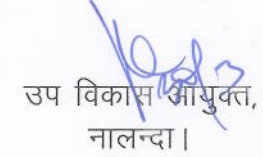 उप विकास आयुक्त,
नालन्दा।